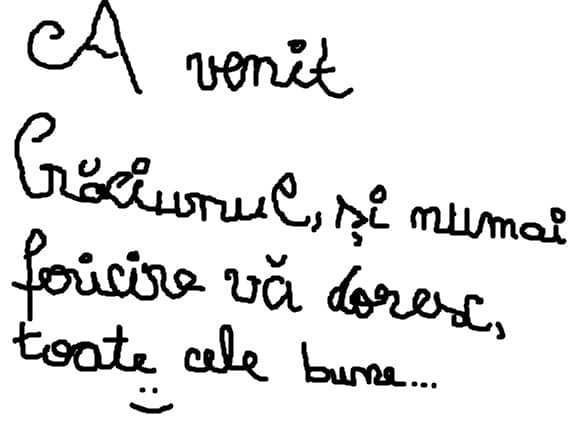 A venit
Crăciunul, și numai
fericire vă doresc,
toate cele bune...